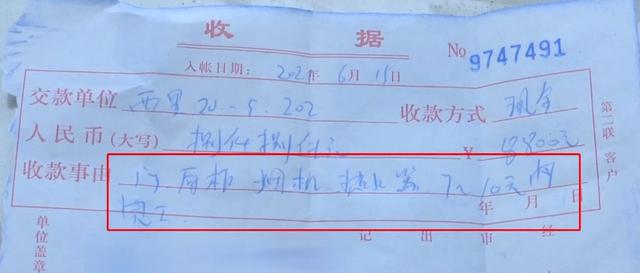 收据
No 9747491
入帐日期: 202 年 6 月 15 日
交款单位 西里 20-5.202 收款方式 现金
人民币(大写) 捌仟捌佰元 ¥ 8800元
收款事由 门 厨柜 烟机 热水器 7~10天内
完工 年 月 日
单位盖章 记 出 审 经
第二联 客户